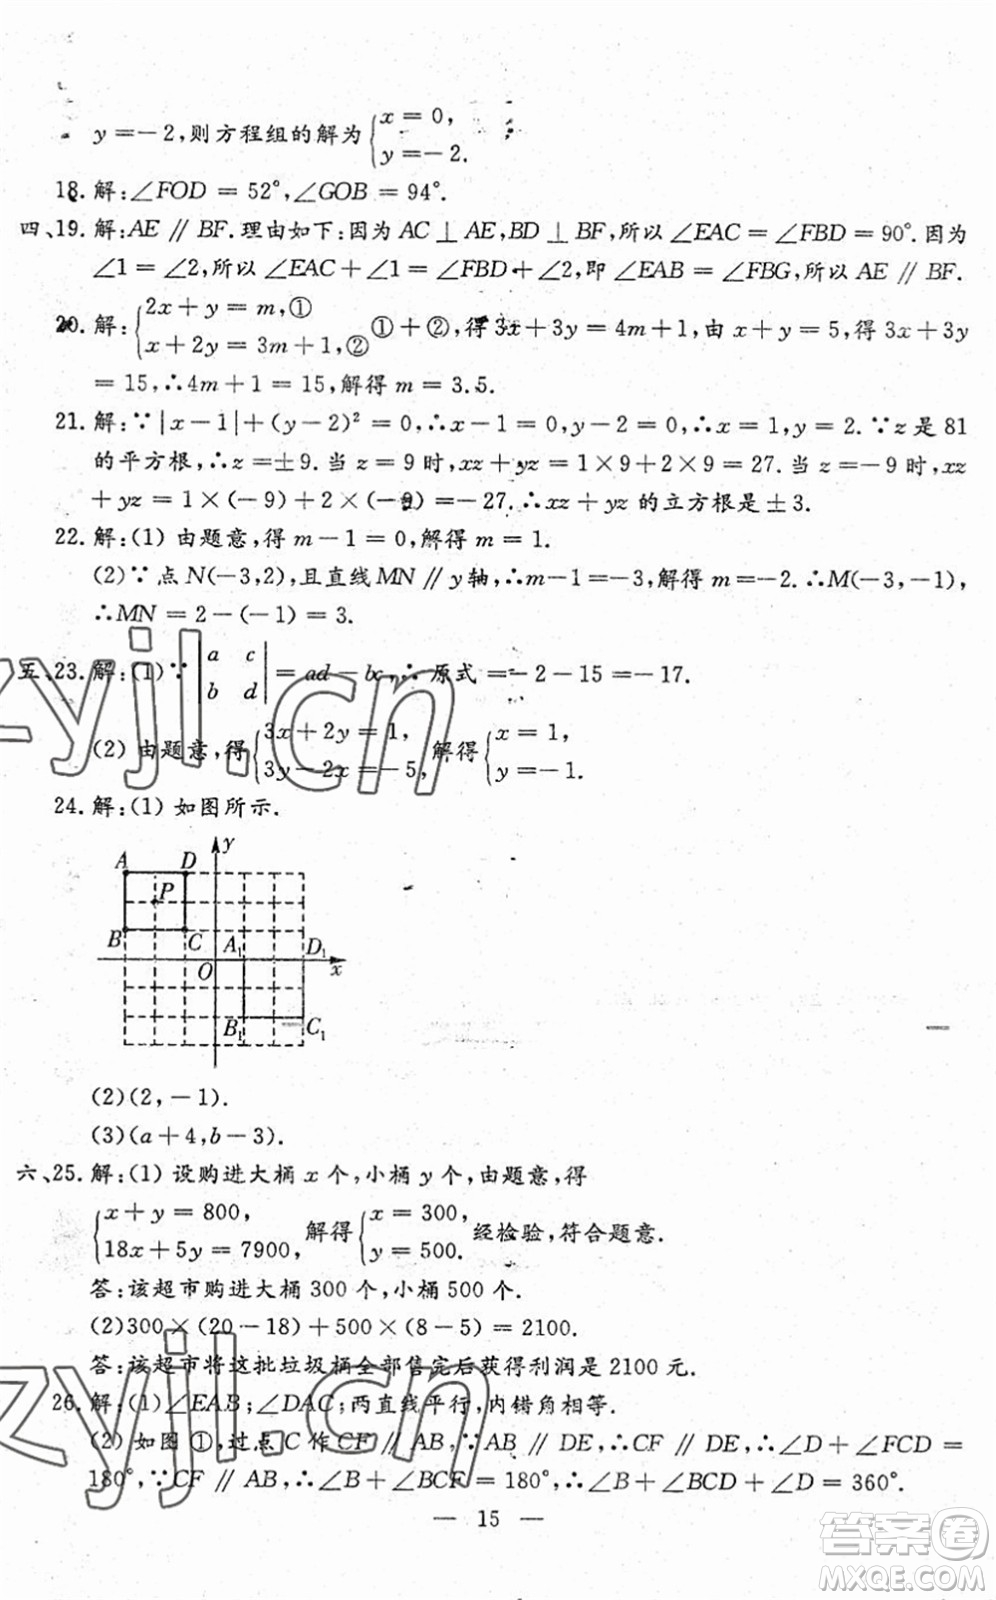 y=-2,则方程组的解为{x=0,
y=-2.
18.解:∠FOD=52°,∠GOB=94°.
四、19.解:AE∥BF.理由如下:因为AC⊥AE,BD⊥BF,所以∠EAC=∠FBD=90°.因为
∠1=∠2,所以∠EAC+∠1=∠FBD+∠2,即∠EAB=∠FBG,所以AE∥BF.
20.解:{2x+y=m,①
x+2y=3m+1,② ①+②,得3x+3y=4m+1,由x+y=5,得3x+3y
=15,∴4m+1=15,解得m=3.5.
21.解:∵|x-1|+(y-2)²=0,∴x-1=0,y-2=0,∴x=1,y=2.∵z是81
的平方根,∴z=±9.当z=9时,xz+yz=1×9+2×9=27.当z=-9时,xz
+yz=1×(-9)+2×(-9)=-27.∴xz+yz的立方根是±3.
22.解:(1)由题意,得m-1=0,解得m=1.
(2)∵点N(-3,2),且直线MN∥y轴,∴m-1=-3,解得m=-2.∴M(-3,-1),
∴MN=2-(-1)=3.
五、23.解:(1)∵|a c
b d|=ad-bc,∴原式=-2-15=-17.
(2)由题意,得{3x+2y=1,
3y-2x=-5, 解得{x=1,
y=-1.
24.解:(1)如图所示.
y
A D
P
B C A₁ D₁
O x
B₁ C₁
(2)(2,-1).
(3)(a+4,b-3).
六、25.解:(1)设购进大桶x个,小桶y个,由题意,得
{x+y=800,
18x+5y=7900, 解得{x=300,
y=500. 经检验,符合题意.
答:该超市购进大桶300个,小桶500个.
(2)300×(20-18)+500×(8-5)=2100.
答:该超市将这批垃圾桶全部售完后获得利润是2100元.
26.解:(1)∠EAB;∠DAC;两直线平行,内错角相等.
(2)如图①,过点C作CF∥AB,∵AB∥DE,∴CF∥DE,∴∠D+∠FCD=
180°,∵CF∥AB,∴∠B+∠BCF=180°,∴∠B+∠BCD+∠D=360°.
— 15 —
zyjl.cn
zyjl.cn
答案卷
MXQE.COM